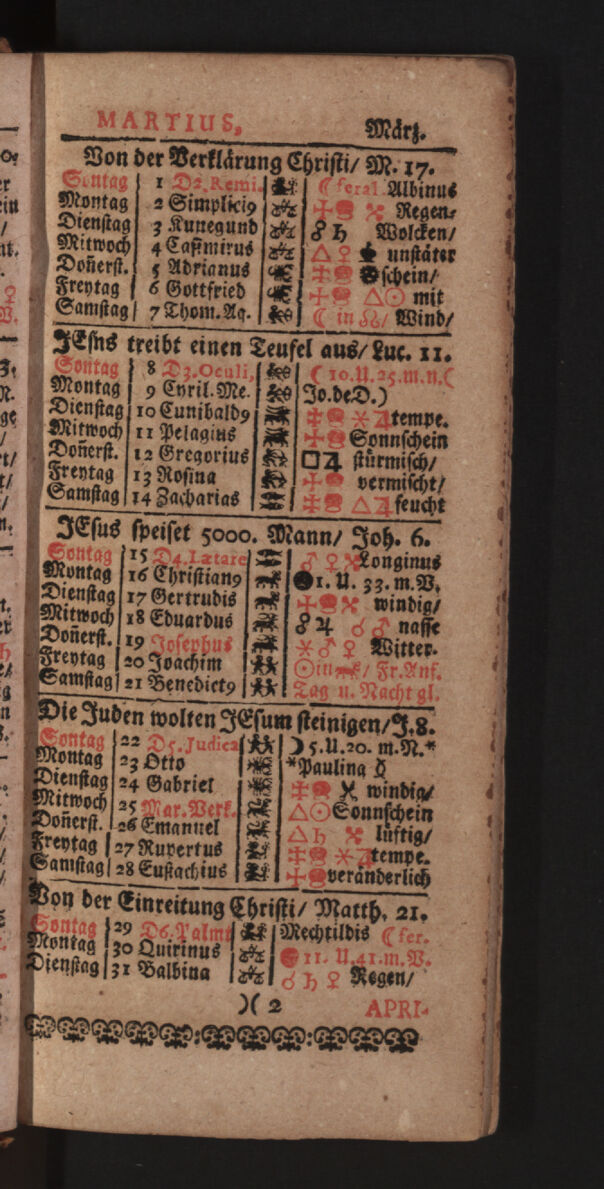 MARTIUS, März.
Von der Verklärung Christi/ M. 17.
Sontag 1 D2. Remi. ☾ feral. Albinus
Montag 2 Simplici9 Regen-
Dienstag 3 Kunegund ☍ ♄ Wolcken/
Mitwoch 4 Casimirus △ ♀ unstäter
Doñerst. 5 Adrianus schein/
Freytag 6 Gottfried △ ☉ mit
Samstag 7 Thom. Aq. ☾ in ☊/ Wind/
JEsus treibt einen Teufel aus/ Luc. 11.
Sontag 8 D3. Oculi, ☾ 10. U. 25. m. n. (
Montag 9 Cyril. Me. Jo. de D.)
Dienstag 10 Cunibald9 ⚹ ♃ tempe.
Mitwoch 11 Pelagius Sonnschein
Doñerst. 12 Gregorius □ ♃ stürmisch/
Freytag 13 Rosina vermischt/
Samstag 14 Zacharias △ ♃ feucht
JEsus speiset 5000. Mann/ Joh. 6.
Sontag 15 D4. Lætare ♂ ♀ Longinus
Montag 16 Christian9 1. U. 33. m. V.
Dienstag 17 Gertrudis windig/
Mitwoch 18 Eduardus ☍ ♃ ☌ ♂ nasse
Doñerst. 19 Josephus ⚹ ♂ ♀ Witter-
Freytag 20 Joachim ☉ in ♈/ Fr. Anf.
Samstag 21 Benedict9 Tag u. Nacht gl.
Die Juden wolten JEsum steinigen/ J. 8.
Sontag 22 D5. Judica ☽ 5. U. 20. m. N. *
Montag 23 Otto *Paulina ☿
Dienstag 24 Gabriel windig/
Mitwoch 25 Mar. Verk. △ ☉ Sonnschein
Doñerst. 26 Emanuel △ ♄ lüftig/
Freytag 27 Rupertus ⚹ ♃ tempe.
Samstag 28 Eustachius veränderlich
Von der Einreitung Christi/ Matth. 21.
Sontag 29 D6. Palm Mechtildis ☾ fer.
Montag 30 Quirinus 11. U. 41. m. V.
Dienstag 31 Balbina ☌ ♄ ♀ Regen/
)( 2 APRI-